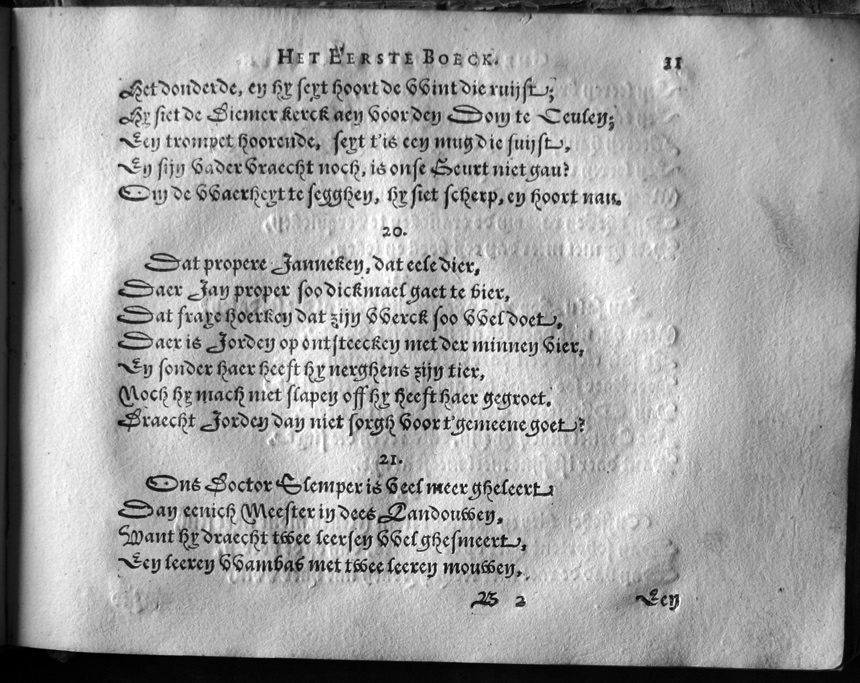 HET EERSTE BOECK. 11
Het donderde, en hy seyt hoort de VVint die ruijst;
Hy siet de Biemer kerck aen voor den Dom te Ceulen;
Een trompet hoorende, seyt t'is een mug die suijst,
En sijn vader vraecht noch, is onse Geurt niet gau?
Om de VVaerheyt te segghen, hy siet scherp, en hoort nau.
20.
Dat propere Janneken, dat eele dier,
Daer Jan proper soo dickmael gaet te bier,
Dat fraye hoerken dat zijn VVerck soo VVel doet,
Daer is Jorden op ontsteecken met der minnen vier,
En sonder haer heeft hy nerghens zijn tier,
Noch hy mach niet slapen off hy heeft haer gegroet.
Draecht Jorden dan niet sorgh voor t'gemeene goet?
21.
Ons Doctor Slemper is veel meer gheleert
Dan eenich Meester in dees Landouwen,
Want hy draecht twee leersen VVel ghesmeert,
Een leeren VVambas met twee leeren mouwen,
B 2 Een